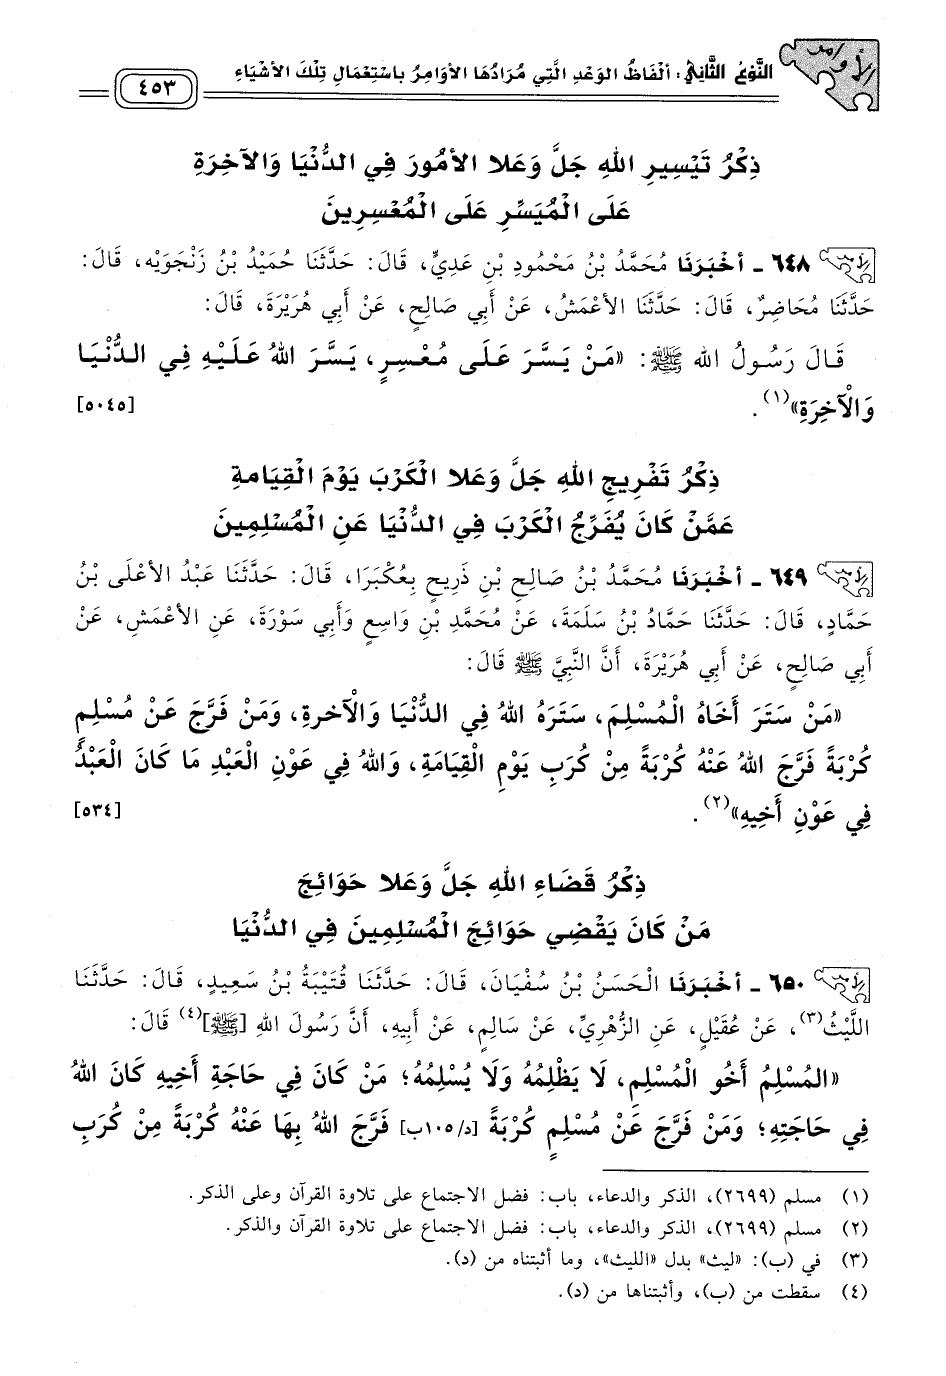 الأوامر
النَّوْعُ الثَّانِي: ألْفَاظُ الوَعْدِ الَّتِي مُرَادُهَا الأوَامِرُ بِاسْتِعْمَالِ تِلْكَ الأشْيَاءِ
٤٥٣
ذِكْرُ تَيْسِيرِ اللهِ جَلَّ وَعَلا الأمُورَ فِي الدُّنْيَا وَالآخِرَةِ
عَلَى الْمُيَسِّرِ عَلَى الْمُعْسِرِينَ
٦٤٨ - أخْبَرَنَا مُحَمَّدُ بْنُ مَحْمُودِ بْنِ عَدِيٍّ، قَالَ: حَدَّثَنَا حُمَيْدُ بْنُ زَنْجَوَيْه، قَالَ:
حَدَّثَنَا مُحَاضِرٌ، قَالَ: حَدَّثَنَا الأعْمَشُ، عَنْ أبِي صَالِحٍ، عَنْ أبِي هُرَيْرَةَ، قَالَ:
قَالَ رَسُولُ الله ﷺ: «مَنْ يَسَّرَ عَلَى مُعْسِرٍ، يَسَّرَ اللهُ عَلَيْهِ فِي الدُّنْيَا
وَالْآخِرَةِ»(١). [٥٠٤٥]
ذِكْرُ تَفْرِيجِ اللهِ جَلَّ وَعَلا الْكَرْبَ يَوْمَ الْقِيَامَةِ
عَمَّنْ كَانَ يُفَرِّجُ الْكَرْبَ فِي الدُّنْيَا عَنِ الْمُسْلِمِينَ
٦٤٩ - أخْبَرَنَا مُحَمَّدُ بْنُ صَالِحِ بْنِ ذَرِيحٍ بِعُكْبَرَا، قَالَ: حَدَّثَنَا عَبْدُ الأعْلَى بْنُ
حَمَّادٍ، قَالَ: حَدَّثَنَا حَمَّادُ بْنُ سَلَمَةَ، عَنْ مُحَمَّدِ بْنِ وَاسِعٍ وَأبِي سَوْرَةَ، عَنِ الأعْمَشِ، عَنْ
أبِي صَالِحٍ، عَنْ أبِي هُرَيْرَةَ، أنَّ النَّبِيَّ ﷺ قَالَ:
«مَنْ سَتَرَ أَخَاهُ الْمُسْلِمَ، سَتَرَهُ اللهُ فِي الدُّنْيَا وَالْآخرةِ، وَمَنْ فَرَّجَ عَنْ مُسْلِمٍ
كُرْبَةً فَرَّجَ اللهُ عَنْهُ كُرْبَةً مِنْ كُرَبِ يَوْمِ الْقِيَامَةِ، وَاللهُ فِي عَوْنِ الْعَبْدِ مَا كَانَ الْعَبْدُ
فِي عَوْنِ أَخِيهِ»(٢). [٥٣٤]
ذِكْرُ قَضَاءِ اللهِ جَلَّ وَعَلا حَوَائِجَ
مَنْ كَانَ يَقْضِي حَوَائِجَ الْمُسْلِمِينَ فِي الدُّنْيَا
٦٥٠ - أخْبَرَنَا الْحَسَنُ بْنُ سُفْيَانَ، قَالَ: حَدَّثَنَا قُتَيْبَةُ بْنُ سَعِيدٍ، قَالَ: حَدَّثَنَا
اللَّيْثُ(٣)، عَنْ عُقَيْلٍ، عَنِ الزُّهْرِيِّ، عَنْ سَالِمٍ، عَنْ أبِيهِ، أنَّ رَسُولَ اللهِ [ﷺ](٤) قَالَ:
«الْمُسْلِمُ أَخُو الْمُسْلِمِ، لَا يَظْلِمُهُ وَلَا يُسْلِمُهُ؛ مَنْ كَانَ فِي حَاجَةِ أَخِيهِ كَانَ اللهُ
فِي حَاجَتِهِ؛ وَمَنْ فَرَّجَ عَنْ مُسْلِمٍ كُرْبَةً [د/١٠٥ب] فَرَّجَ اللهُ بِهَا عَنْهُ كُرْبَةً مِنْ كُرَبِ
(١) مسلم (٢٦٩٩)، الذكر والدعاء، باب: فضل الاجتماع على تلاوة القرآن وعلى الذكر.
(٢) مسلم (٢٦٩٩)، الذكر والدعاء، باب: فضل الاجتماع على تلاوة القرآن والذكر.
(٣) في (ب): «ليث» بدل «الليث»، وما أثبتناه من (د).
(٤) سقطت من (ب)، وأثبتناها من (د).